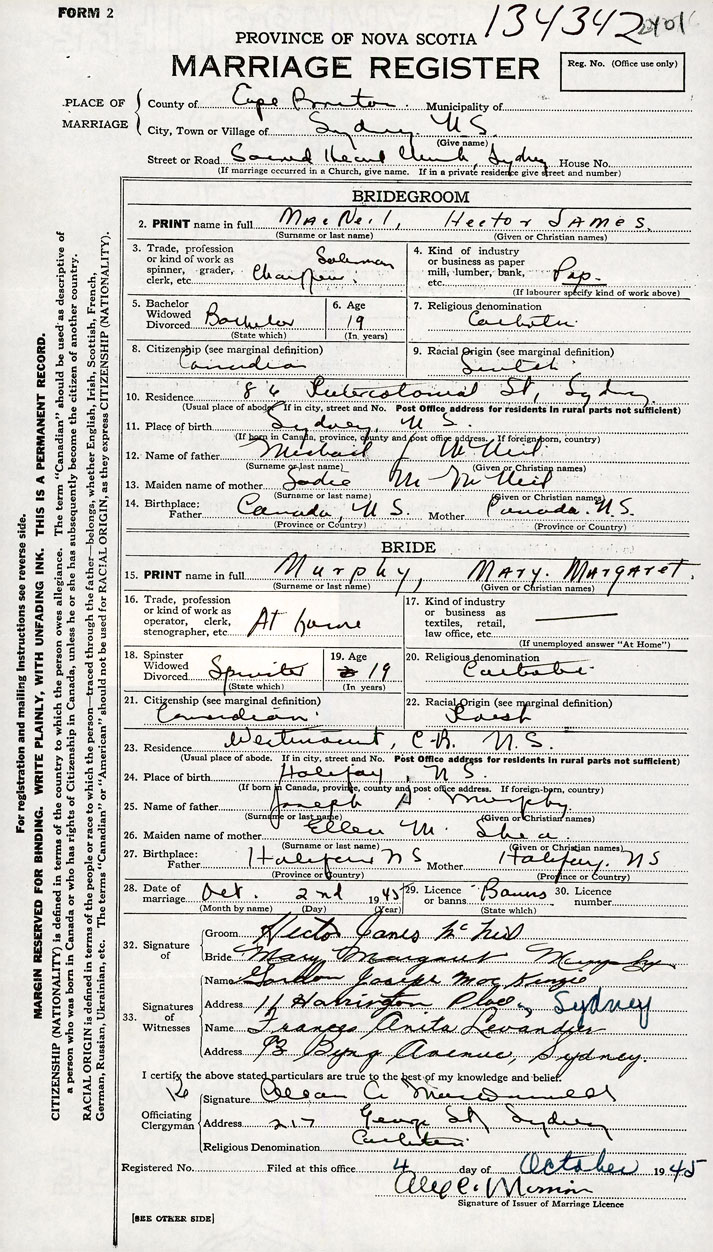 FORM 2
134342
PROVINCE OF NOVA SCOTIA
MARRIAGE REGISTER
Reg. No. (Office use only)
PLACE OF MARRIAGE
County of Cape Breton. Municipality of
City, Town or Village of Sydney N.S.
(Give name)
Street or Road Sacred Heart Church, Sydney House No.
(If marriage occurred in a Church, give name. If in a private residence give street and number)
BRIDEGROOM
2. PRINT name in full MacNeil, Hector JAMES.
(Surname or last name) (Given or Christian names)
3. Trade, profession or kind of work as spinner, grader, clerk, etc. Salesman
4. Kind of industry or business as paper mill, lumber, bank, etc. Pop.
(If labourer specify kind of work above)
5. Bachelor Widowed Divorced Bachelor
(State which)
6. Age 19
(In years)
7. Religious denomination Catholic
8. Citizenship (see marginal definition) Canadian
9. Racial Origin (see marginal definition) Scotch
10. Residence 86 Intercolonial St, Sydney.
(Usual place of abode. If in city, street and No. Post Office address for residents in rural parts not sufficient)
11. Place of birth Sydney, N.S.
(If born in Canada, province, county and post office address. If foreign-born, country)
12. Name of father Michael J McNeil
(Surname or last name) (Given or Christian names)
13. Maiden name of mother Sadie M McNeil
(Surname or last name) (Given or Christian names)
14. Birthplace: Father Canada, N.S. Mother Canada. N.S.
(Province or Country) (Province or Country)
BRIDE
15. PRINT name in full Murphy, MARY. MARGARET.
(Surname or last name) (Given or Christian names)
16. Trade, profession or kind of work as operator, clerk, stenographer, etc. At home
17. Kind of industry or business as textiles, retail, law office, etc.
(If unemployed answer "At Home")
18. Spinster Widowed Divorced Spinster
(State which)
19. Age 19
(In years)
20. Religious denomination Catholic
21. Citizenship (see marginal definition) Canadian.
22. Racial Origin (see marginal definition)
23. Residence Westmount, C.B. N.S.
(Usual place of abode. If in city, street and No. Post Office address for residents in rural parts not sufficient)
24. Place of birth Halifax, N.S.
(If born in Canada, province, county and post office address. If foreign-born, country)
25. Name of father Joseph A. Murphy.
(Surname or last name) (Given or Christian names)
26. Maiden name of mother Ellen M. Shea.
(Surname or last name) (Given or Christian names)
27. Birthplace: Father Halifax NS Mother Halifax. NS
(Province or Country) (Province or Country)
28. Date of marriage Oct. 2nd 1945
(Month by name) (Day) (Year)
29. Licence or banns Banns
(State which)
30. Licence number
32. Signature of
Groom Hector James McNeil
Bride Mary Margaret Murphy
33. Signatures of Witnesses
Name Gordon Joseph MacKenzie
Address 11 Harrington Place, Sydney
Name Frances Anita Levandier
Address 93 Byng Avenue, Sydney.
I certify the above stated particulars are true to the best of my knowledge and belief.
Officiating Clergyman
Signature
Address 217 George St, Sydney
Religious Denomination Catholic
Registered No. Filed at this office 4 day of October 1945
Signature of Issuer of Marriage Licence
[SEE OTHER SIDE]
For registration and mailing instructions see reverse side.
MARGIN RESERVED FOR BINDING. WRITE PLAINLY, WITH UNFADING INK. THIS IS A PERMANENT RECORD.
CITIZENSHIP (NATIONALITY) is defined in terms of the country to which the person owes allegiance. The term "Canadian" should be used as descriptive of
a person who was born in Canada or who has rights of Citizenship in Canada, unless he or she has subsequently become the citizen of another country.
RACIAL ORIGIN is defined in terms of the people or race to which the person—traced through the father—belongs, whether English, Irish, Scottish, French,
German, Russian, Ukrainian, etc. The terms "Canadian" or "American" should not be used for RACIAL ORIGIN, as they express CITIZENSHIP (NATIONALITY).